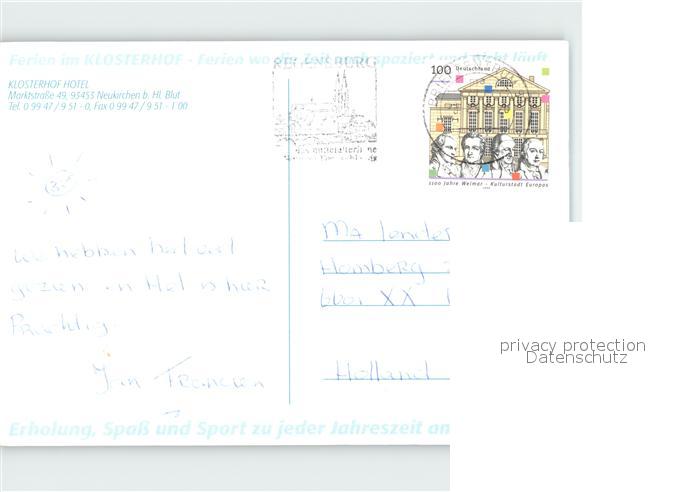 Ferien im KLOSTERHOF - Ferien wo die Zeit noch spaziert und nicht läuft
KLOSTERHOF HOTEL
Marktstraße 49, 93453 Neukirchen b. Hl. Blut
Tel. 0 99 47 / 9 51 - 0, Fax 0 99 47 / 9 51 - 1 00
REGENSBURG
100 Deutschland
1100 Jahre Weimar - Kulturstadt Europas
We hebben heel veel
gezien en Het is hier
Prachtig.
Jan Francien
Homberg
6601 XX
Holland
privacy protection
Datenschutz
Erholung, Spaß und Sport zu jeder Jahreszeit an